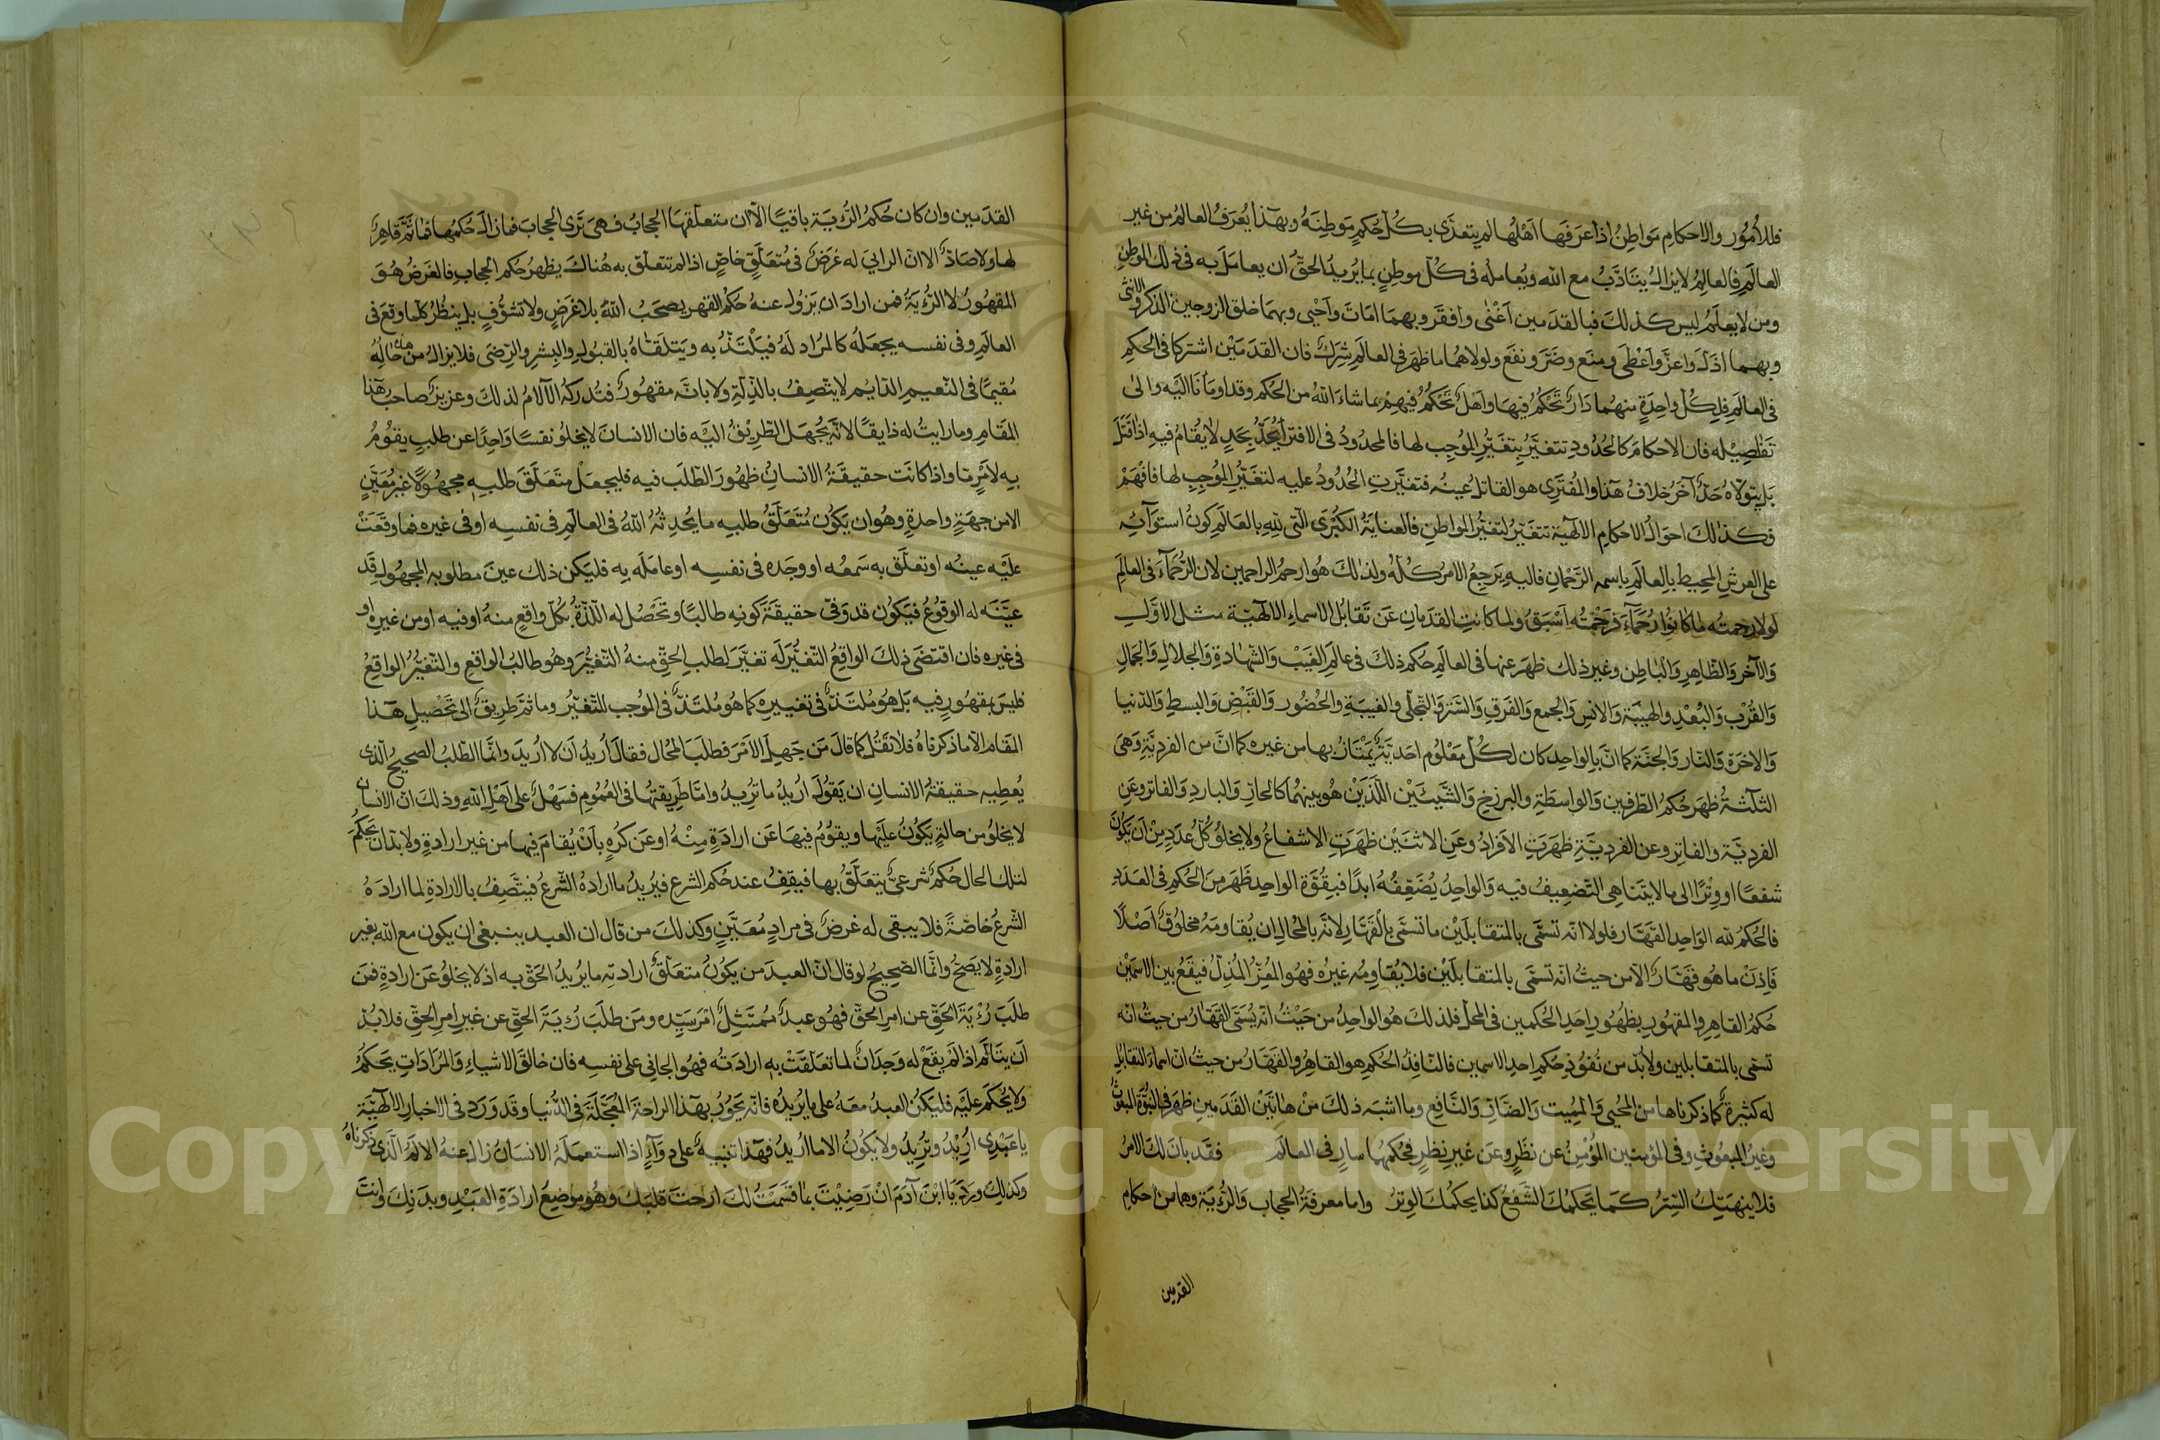 فللأمور والاحكام مواطن اذا عرفها اهلها لم يتعدّى بكل حكم موطنه وبهذا يُعرف العالم من غير
العالم فالعالم لا يزال يتادّب مع الله ويعامله في كل موطن بما يريد الحق ان يعامل به في ذلك الموطن
ومن لا يعلم ليس كذلك فبالقدمين اغنى وافقر وبهما امات واحيى وبهما خلق الزوجين الذكر والانثى
وبهما اذلّ واعزّ واعطى ومنع وضرّ ونفع ولولاهما ما ظهر في العالم شرك فان القدمين اشتركا في الحكم
في العالم فلكل واحدة منهما دار تحكم فيها واهل تحكم فيهم بما شاء الله من الحكم وقد اومأنا اليه والى
تفصيله فان الاحكام كالحدود تتغير بتغير الموجب لها فالمحدود في الافترا يحدّ بحد لا يقام فيه اذا قتل
بل يتولاه حدّ آخر خلاف هذا والمفتري هو القاتل عينه فتغيرت الحدود عليه لتغير الموجب لها فافهم
فكذلك احوال الاحكام الالهية تتغير لتغير المواطن فالعناية الكبرى التي لله بالعالم كون استوآئه
على العرش المحيط بالعالم باسمه الرحمان فاليه يرجع الامر كله ولذلك هو ارحم الراحمين لان الرحمآء في العالم
لولا رحمته لما كانوا رحمآء فرحمته اسبق ولما كانت القدمان عن تقابل الاسماء الالهيّة مثل الاوّل
والآخر والظاهر والباطن وغير ذلك ظهر عنها في العالم حكم ذلك في عالم الغيب والشهادة والجلال والجمال
والقرب والبعد والهيبة والانس والجمع والفرق والستر والتجلّي والغيبة والحضور والقبض والبسط والدنيا
والاخرة والنار والجنّة كما انّ بالواحد كان لكل معلوم احديّة يمتاز بها من غيره كما انّ من الفرديّة وهي
الثلثة ظهر حكم الطرفين والواسطة والبرزخ والشيئين اللّذين هو بينهما كالحار والبارد والفاتر وعن
الفرديّة والفاتر وعن الفرديّة ظهرت الافراد وعن الاثنين ظهرت الاشفاع ولا يخلو كل عدد من ان يكون
شفعًا او وترًا الى ما لا يتناهى التضعيف فيه والواحد يضعفه ابدًا فبقوة الواحد ظهر من الحكم في العدد
فالحكم لله الواحد القهّار فلولا انه تسمّى بالمتقابلين ما تسمّى بالقهّار لانه بالمحال ان يقاومه مخلوق اصلًا
فاذن ما هو قهّار الا من حيث انه تسمّى بالمتقابلين فلا يقاومه غيره فهو المعزّ المذلّ فيقع بين الاسمين
حكم القاهر والمقهور بظهور احد الحكمين في المحل فلذلك هو الواحد من حيث انه يسمّى القهّار من حيث انه
تسمّى بالمتقابلين ولا بدّ من نفوذ حكم احد الاسمين فالنافذ الحكم هو القاهر والقهّار من حيث ان اسماء التقابل
له كثيرة كما ذكرناها من المحيي والمميت والضارّ والنّافع وما اشبه ذلك من هاتين القدمين ظهر في النبوّة المبعوث
وغير المبعوث وفي المؤمنين المؤمن عن نظر وعن غير نظر فحكمها سار في العالم فقد بان لك الامر
فلا ينهتك السّتر كما يحكمك الشفع كذا يحكمك الوتر واما معرفة الحجاب والرّؤية وهما من احكام
القدمين
القدمين وان كان حكم الرؤية باقيًا الا ان متعلّقها الحجاب فهي ترى الحجاب فما زال حكمها فما ثمّ قاهر
لها ولا صادّ الا ان الرايي له غرض في متعلّق خاصّ اذا لم تتعلّق به هناك يظهر حكم الحجاب فالغرض هو
المقهور لا الرّؤية فمن اراد ان يزول عنه حكم القهر يصحب الله بلا غرض ولا تشوّف بل ينظر كلما وقع في
العالم وفي نفسه يجعله كالمراد له فيلتذّ به ويتلقّاه بالقبول والبشر والرضى فلا يزال من هذه حاله
مقيمًا في النعيم الدايم لا يتّصف بالذلّة ولا بانه مقهور فتدركه الآلام لذلك وعزيز صاحب هذا
المقام وما رايت له ذايقًا لانه يجهل الطريق اليه فان الانسان لا يخلو نفسًا واحدًا عن طلب يقوم
به لامر ما واذا كانت حقيقة الانسان ظهور الطلب فيه فليجعل متعلّق طلبه مجهولًا غير معيّن
الا من جهة واحدة وهو ان يكون متعلّق طلبه ما يحدثه الله في العالم في نفسه او في غيره فما وقعت
عليه عينه او تعلّق به سمعه او وجده في نفسه او عامله به فليكن ذلك عين مطلوبه المجهول قد
عيّنه له الوقوع فيكون قد وفّى حقيقة كونه طالبًا وتحصل له اللّذّة بكل واقع منه او فيه او من غيره او
في غيره فان اقتضى ذلك الواقع التغيّر له تغيّر لطلب الحق منه التغيّر وهو طالب الواقع والتغيّر الواقع
فليس بمقهور فيه بل هو ملتذّ في تغييره كما هو ملتذّ في الموجب للتغيّر وما ثمّ طريق الى تحصيل هذا
المقام الا ما ذكرناه فلا تقل كما قال من جهل الامر فطلب المحال فقال اريد ان لا اريد وانما الطلب الصحيح الذي
يعطيه حقيقة الانسان ان يقول اريد ما تريد وامّا طريقتها في العموم فسهل على اهل الله وذلك ان الانسان
لا يخلو من حالة يكون عليها ويقوم فيها عن ارادة منه او عن كره بان يقام فيها من غير ارادة ولا بدّ ان يحكم
لتلك الحال حكم شرعيّ يتعلّق بها فيقف عند حكم الشرع فيريد ما اراده الشرع فيتّصف بالارادة لما اراده
الشرع خاصّة فلا يبقى له غرض في مراد معيّن وكذلك من قال ان العبد ينبغي ان يكون مع الله بغير
ارادة لا يصحّ وانّما الصحيح لو قال انّ العبد من يكون متعلّق ارادته ما يريد الحقّ به اذ لا يخلو عن ارادة فمن
طلب رؤية الحقّ عن امر الحقّ فهو عبد ممتثل امر سيّده ومن طلب رؤية الحقّ عن غير امر الحقّ فلا بدّ
ان يتالّم اذا لم يقع له وجدان لما تعلّقت به ارادته فهو الجاني على نفسه فان خالق الاشياء والمرادات يحكم
ولا يحكم عليه فليكن العبد معه على ما يريده فانه يحوز بهذا الراحة المعجّلة في الدنيا وقد ورد في الاخبار الالهيّة
يا عبدي اريد وتريد ولا يكون الا ما اريد فهذا تنبيه على دوآء اذا استعمله الانسان زال عنه الالم الذي ذكرناه
وكذلك ورد يا ابن آدم ان رضيت بما قسمت لك ارحت قلبك وهو موضع ارادة العبد وبدنك وانت